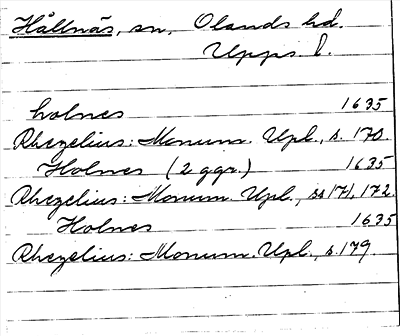 Hållnäs, sn, Olands hd.
Upps l.
holnes 1635
Rhezelius: Monum. Upl., s. 170.
Holnes (2 ggr.) 1635
Rhezelius: Monum. Upl., ss 171, 172.
Holnes 1635
Rhezelius: Monum. Upl., s. 179.